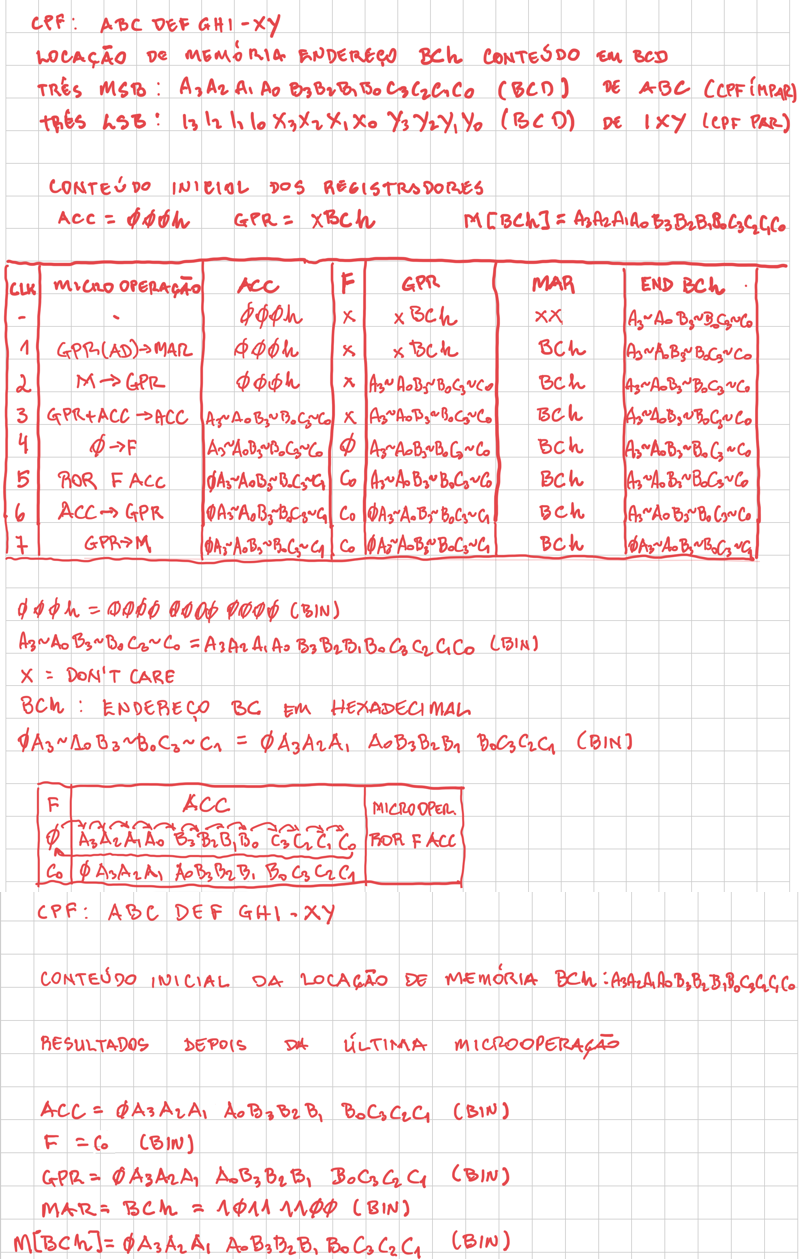 CPF: ABC DEF GHI-XY
LOCAÇÃO DE MEMÓRIA ENDEREÇO BCh CONTEÚDO EM BCD
TRÊS MSB: A3A2A1A0 B3B2B1B0 C3C2C1C0 (BCD) DE ABC (CPF ÍMPAR)
TRÊS LSB: I3I2I1I0 X3X2X1X0 Y3Y2Y1Y0 (BCD) DE IXY (CPF PAR)
CONTEÚDO INICIAL DOS REGISTRADORES
ACC = ØØØh GPR = xBCh M[BCh] = A3A2A1A0 B3B2B1B0 C3C2C1C0
CLK MICROOPERAÇÃO ACC F GPR MAR END BCh
- - ØØØh x xBCh xx A3~A0B3~B0C3~C0
1 GPR(AD)→MAR ØØØh x xBCh BCh A3~A0B3~B0C3~C0
2 M→GPR ØØØh x A3~A0B3~B0C3~C0 BCh A3~A0B3~B0C3~C0
3 GPR+ACC→ACC A3~A0B3~B0C3~C0 x A3~A0B3~B0C3~C0 BCh A3~A0B3~B0C3~C0
4 Ø→F A3~A0B3~B0C3~C0 Ø A3~A0B3~B0C3~C0 BCh A3~A0B3~B0C3~C0
5 ROR F ACC ØA3~A0B3~B0C3~C1 C0 A3~A0B3~B0C3~C0 BCh A3~A0B3~B0C3~C0
6 ACC→GPR ØA3~A0B3~B0C3~C1 C0 ØA3~A0B3~B0C3~C1 BCh A3~A0B3~B0C3~C0
7 GPR→M ØA3~A0B3~B0C3~C1 C0 ØA3~A0B3~B0C3~C1 BCh ØA3~A0B3~B0C3~C1
ØØØh = ØØØØ ØØØØ ØØØØ (BIN)
A3~A0B3~B0C3~C0 = A3A2A1A0 B3B2B1B0 C3C2C1C0 (BIN)
X = DON'T CARE
BCh : ENDEREÇO BC EM HEXADECIMAL
ØA3~A0B3~B0C3~C1 = ØA3A2A1 A0B3B2B1 B0C3C2C1 (BIN)
F ACC MICROOPER.
Ø A3A2A1A0 B3B2B1B0 C3C2C1C0 ROR F ACC
C0 ØA3A2A1 A0B3B2B1 B0C3C2C1
CPF: ABC DEF GHI-XY
CONTEÚDO INICIAL DA LOCAÇÃO DE MEMÓRIA BCh: A3A2A1A0B3B2B1B0C3C2C1C0
RESULTADOS DEPOIS DA ÚLTIMA MICROOPERAÇÃO
ACC = ØA3A2A1 A0B3B2B1 B0C3C2C1 (BIN)
F = C0 (BIN)
GPR = ØA3A2A1 A0B3B2B1 B0C3C2C1 (BIN)
MAR = BCh = 1Ø11 11ØØ (BIN)
M[BCh] = ØA3A2A1 A0B3B2B1 B0C3C2C1 (BIN)